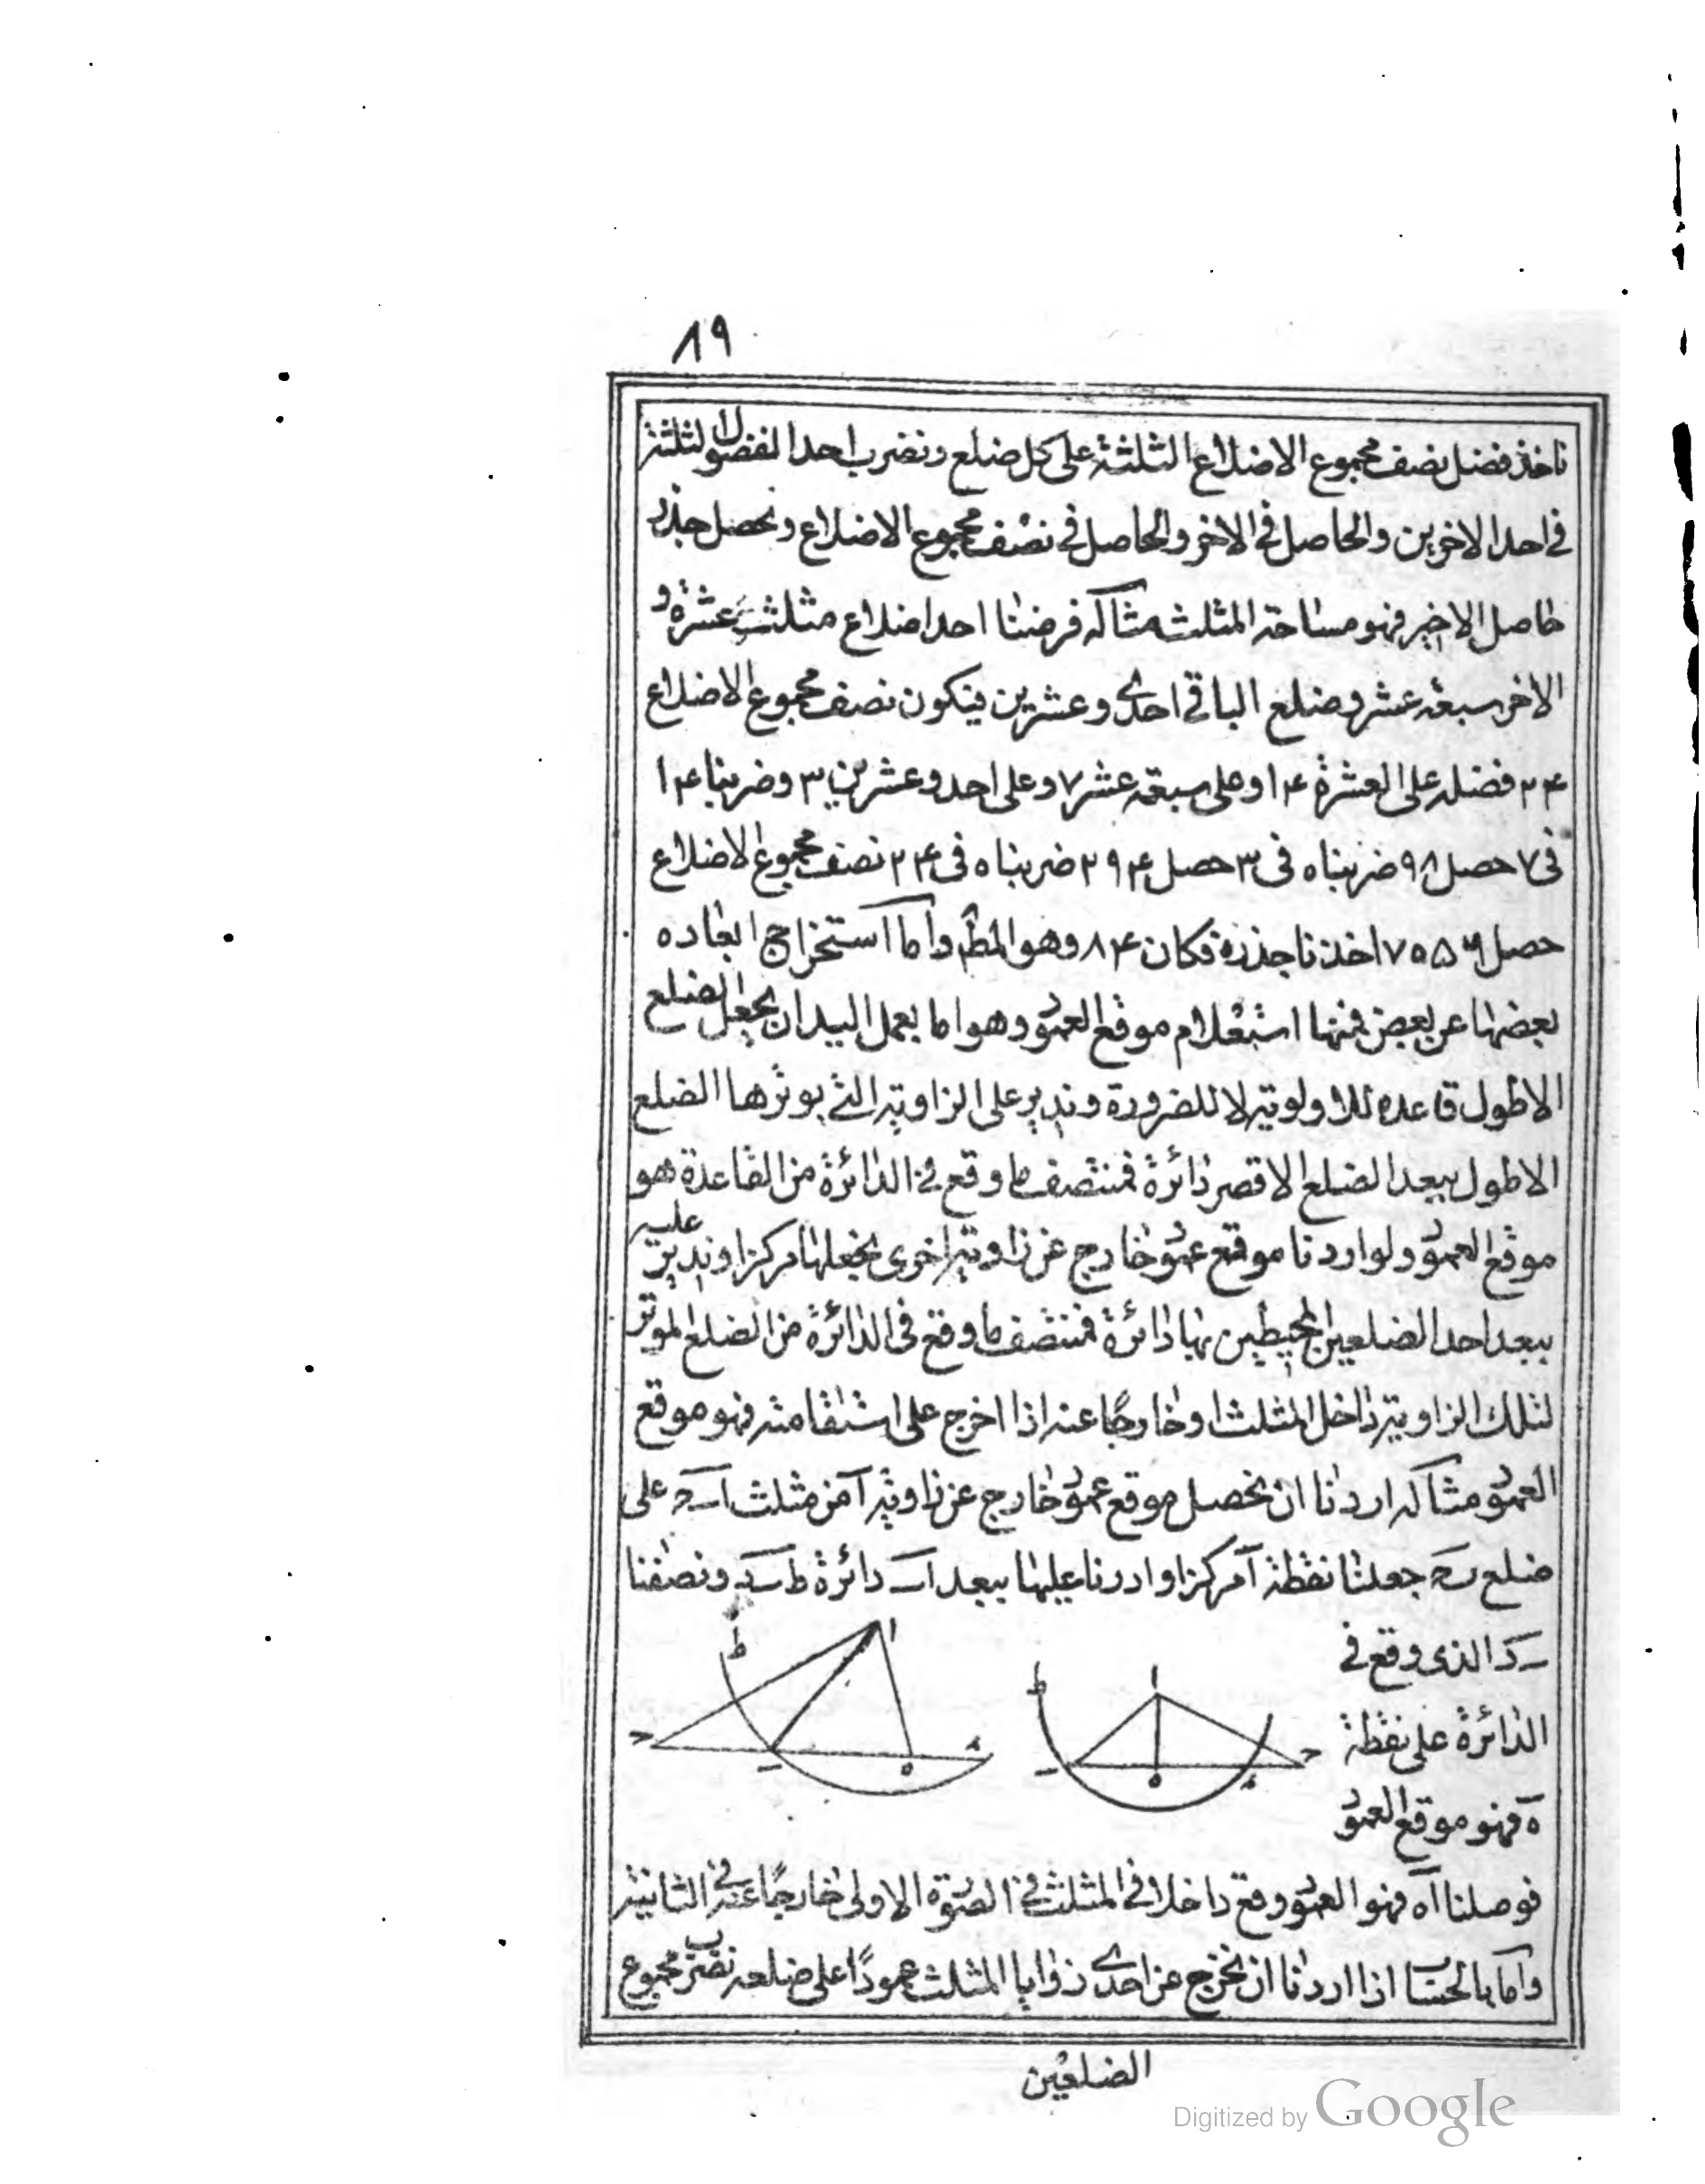 ٨٩
ناخذ فضل نصف مجموع الاضلاع الثلثة على كل ضلع ونضرب احد الفضول الثلثة
فى احد الاخرين والحاصل فى الاخر والحاصل فى نصف مجموع الاضلاع ونحصل جذر
حاصل الاخير فهو مساحة المثلث مثاله فرضنا احد اضلاع مثلث عشرة و
الاخر سبعة عشر وضلع الباقى احدى وعشرين فيكون نصف مجموع الاضلاع
٢۴ فضله على العشرة ١۴ وعلى سبعة عشر ٧ وعلى احد وعشرين ٣ وضربنا ١۴
فى ٧ حصل ٩٨ ضربناه فى ٣ حصل ٢٩۴ ضربناه فى ٢۴ نصف مجموع الاضلاع
حصل ٧٠۵٦ اخذنا جذره فكان ٨۴ وهو المط واما استخراج ابعاده
بعضها عن بعض فمنها استعلام موقع العمود وهو اما بعمل اليد ان نجعل الضلع
الاطول قاعده للاولوية لا للضرورة وندير على الزاوية التى يوترها الضلع
الاطول ببعد الضلع الاقصر دائرة فمنتصف ما وقع فى الدائرة من القاعدة هو
موقع العمود ولو اردنا موقع عمود خارج عن زاوية اخرى نجعلها مركزا وندير عليه
ببعد احد الضلعين المحيطين بها دائرة فمنتصف ما وقع فى الدائرة من الضلع الموتر
لتلك الزاوية داخل المثلث او خارجًا عنه اذا اخرج على استقامته فهو موقع
العمود مثاله اردنا ان نحصل موقع عمود خارج عن زاوية آ من مثلث ا ب ح على
ضلع ب ح جعلنا نقطة آ مركزا وادرنا عليها ببعد ا ب دائرة ط ب د ونصفنا
ب د الذى وقع فى
الدائرة على نقطة
ه فهو موقع العمود
ا ط ب ه د ح
ا ط ب ه د ح
فوصلنا اه فهو العمود وقع داخلا فى المثلث فى الصورة الاولى خارجًا عنه فى الثانية
واما بالحساب اذا اردنا ان نخرج عن احدى زوايا المثلث عمودًا على ضلعه نضرب مجموع
الضلعين
Digitized by Google